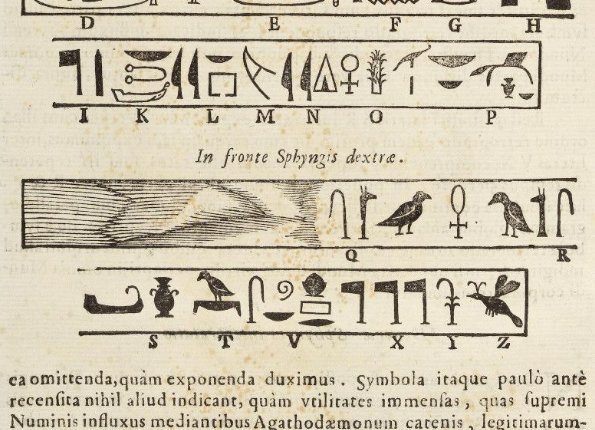 D E F G H
I K L M N O P
In fronte Sphyngis dextræ.
Q R
S T V X Y Z
ea omittenda, quàm exponenda duximus. Symbola itaque paulò antè
recensita nihil aliud indicant, quàm vtilitates immensas, quas supremi
Numinis influxus mediantibus Agathodæmonum catenis, legitimarum-